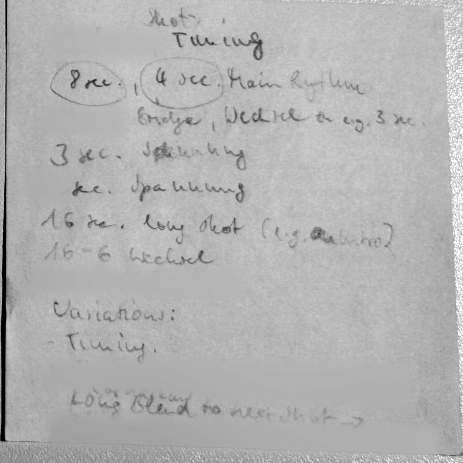 Shot:
Timing
8 sec., 4 sec. Main Rythm
Bridge, Wechsel e.g. 3 sec.
3 sec. Spannung
sec. Spannung
16 sec. long shot (e.g.
16-6 Wechsel
Variations:
- Timing.
Long Blend to next shot →